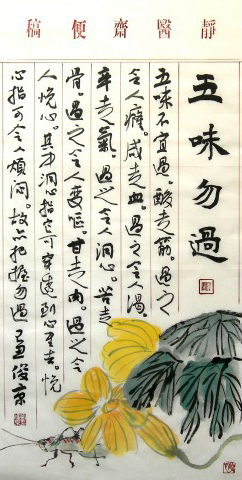 靜醫齋便稿
五味勿過
五味不宜過。酸走筋。過之
令人癃。咸走血。過之令人渴。
辛走氣。過之令人洞心。苦走
骨。過之令人變嘔。甘走肉。過之令
人悗心。其中洞心指它可穿透到心里去。悗
心指可令人煩悶。故把握勿過 丑 俊京